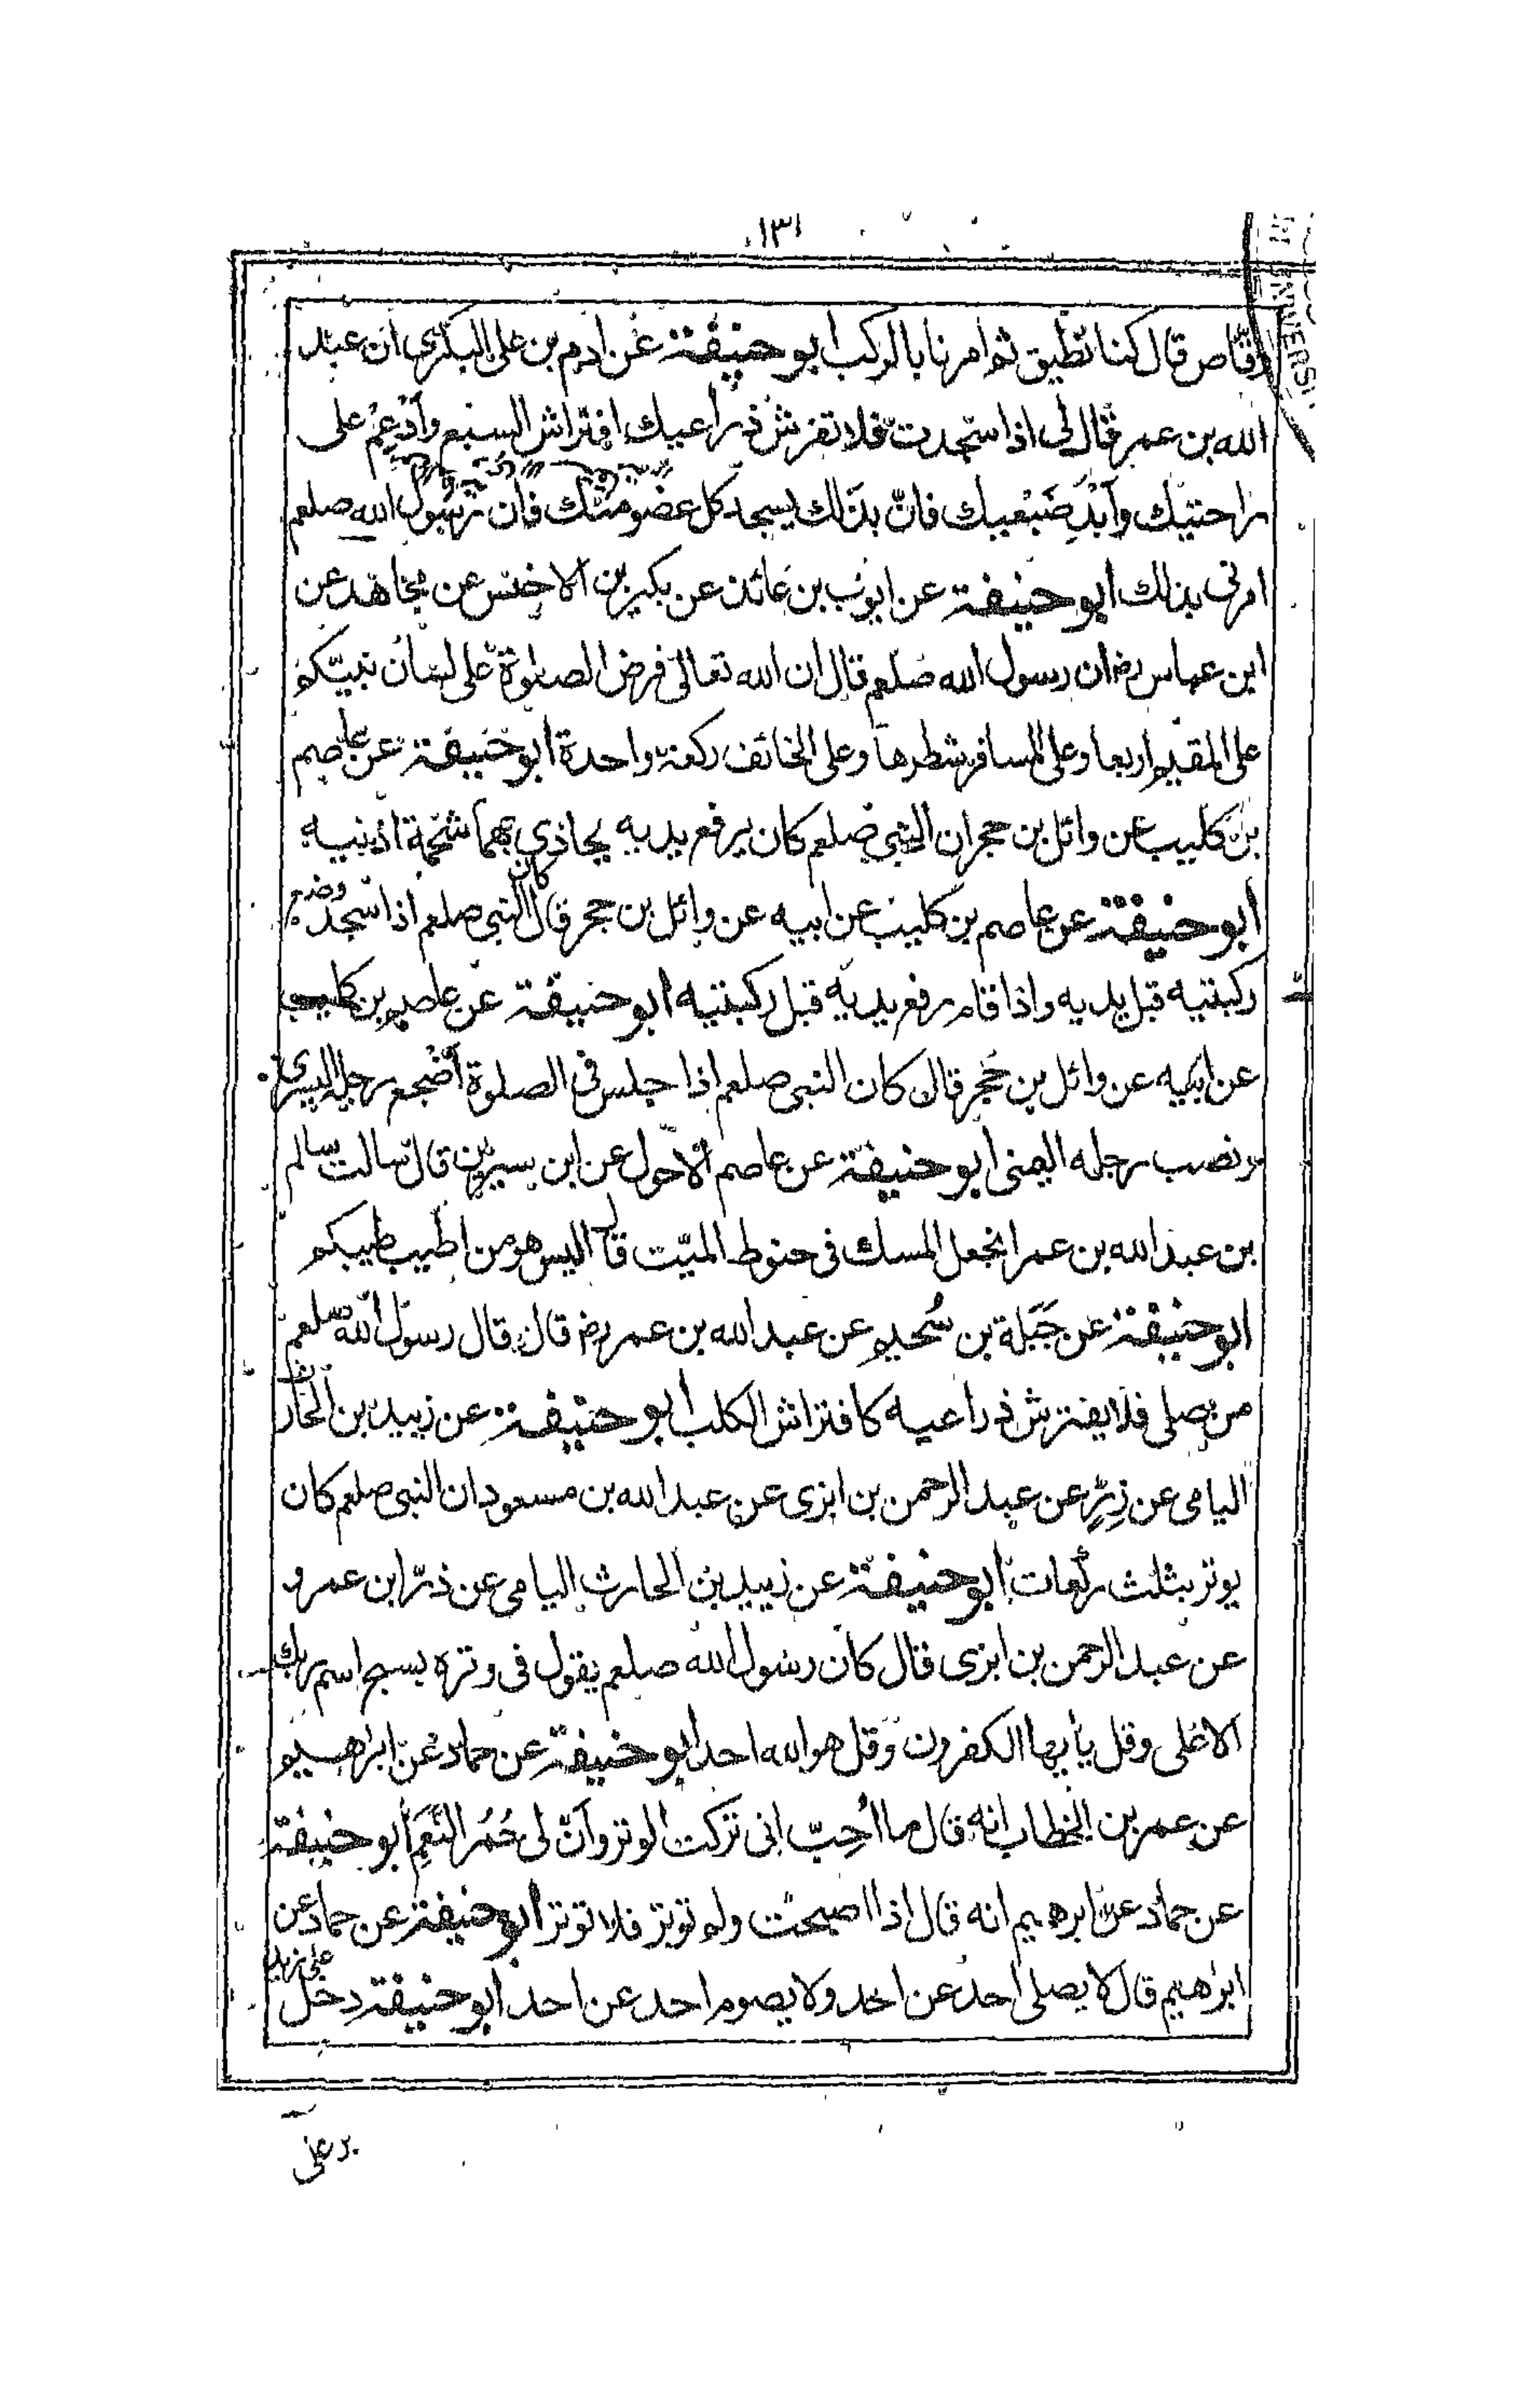 ١٣١
وقاص قال كنا نطبق ثم امرنا بالركب ابو حنيفة عن ادم بن على البكرى ان عبد
الله بن عمر قال لى اذا سجدت فلا تفرش ذراعيك افتراش السبع وادعم على
راحتيك وأبد ضبعيك فانّ بذلك يسجد كل عضو منك فان رسول الله صلعم
امرنى بذلك ابو حنيفة عن ايوب بن عائذ عن بكير بن الاخنس عن مجاهد عن
ابن عباس رض ان رسول الله صلعم قال ان الله تعالى فرض الصلوة على لسان نبيّكم
على المقيم اربعا وعلى المسافر شطرها وعلى الخائف ركعة واحدة ابو حنيفة عن عاصم
بن كليب عن وائل بن حجر ان النبى صلعم كان يرفع يديه يحاذي بهما شحمة اذنيه
ابو حنيفة عن عاصم بن كليب عن ابيه عن وائل بن حجر قال كان النبى صلعم اذا سجد وضع
ركبتيه قبل يديه واذا قام رفع يديه قبل ركبتيه ابو حنيفة عن عاصم بن كليب
عن ابيه عن وائل بن حُجر قال كان النبى صلعم اذا جلس فى الصلوة أضجع رجله اليسرى
و نصب رجله اليمنى ابو حنيفة عن عاصم الاحول عن ابن سيرين قال سالت سالم
بن عبد الله بن عمر انجعل المسك فى حنوط الميّت قال اليس هو من اطيب طيبكم
ابو حنيفة عن جَبَلة بن سُحيم عن عبد الله بن عمر رض قال قال رسول الله صلعم
من يصلى فلا يفترش ذراعيه كافتراش الكلب ابو حنيفة عن زبيد بن الحارث
اليامى عن ذِرٍّ عن عبد الرحمن بن ابزى عن عبد الله بن مسعود ان النبى صلعم كان
يوتر بثلث ركعات ابو حنيفة عن زبيد بن الحارث اليامى عن ذرّ ابن عمرو
عن عبد الرحمن بن ابزى قال كان رسول الله صلعم يقول فى وتره بسبح اسم ربك
الاعلى وقل يأيها الكفرون وقل هو الله احد ابو حنيفة عن حماد عن ابراهيم
عن عمر بن الخطاب انه قال ما اُحِبّ انى تركت الوتر وأنّ لى حُمُر النَعَمِ ابو حنيفة
عن حماد عن ابرهيم انه قال اذا اصبحت ولم توتر فلا توتر ابو حنيفة عن حماد عن
ابراهيم قال لا يصلى احد عن احد ولا يصوم احد عن احد ابو حنيفة دخل